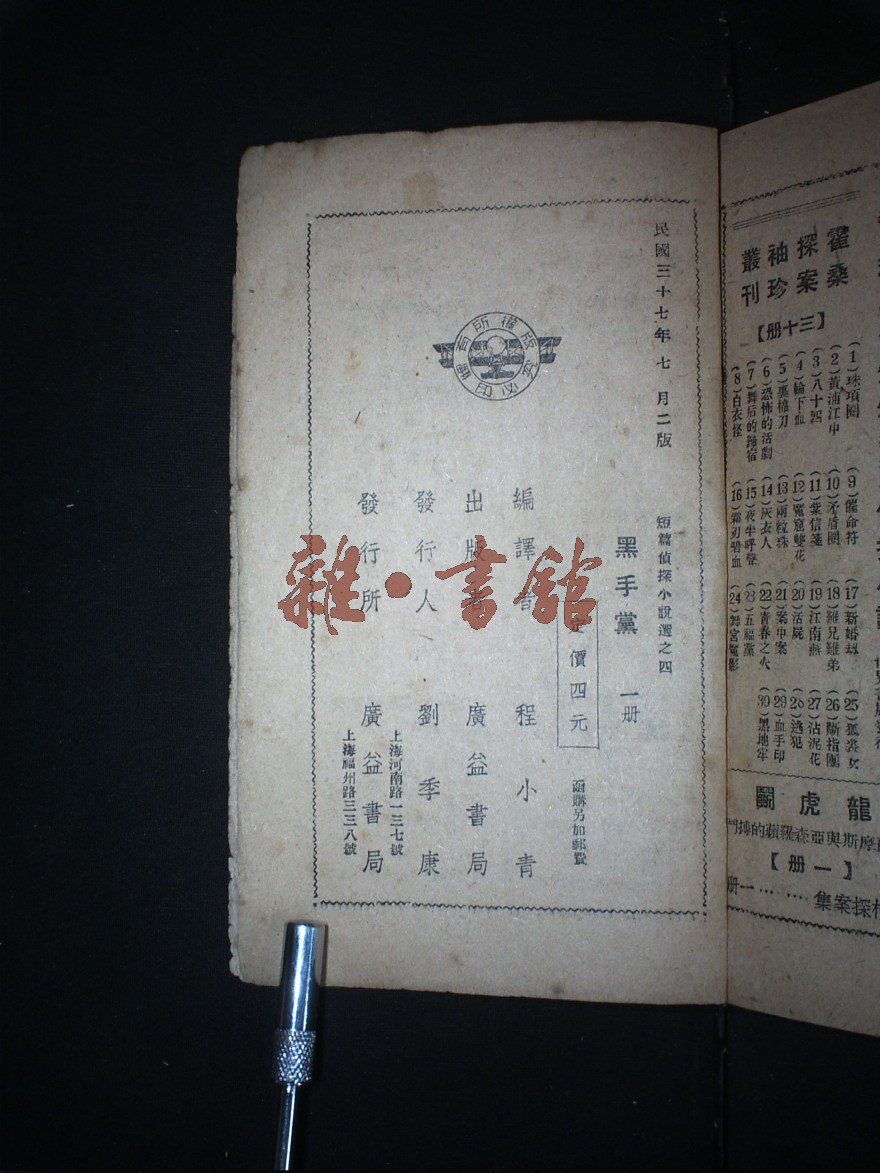 民國三十七年七月二版
短篇偵探小說選之四
黑手黨 一册
定價四元
函購另加郵費
編譯者 程小青
出版者 廣益書局
發行人 劉季康
發行所 廣益書局
上海河南路一三七號
上海福州路三三八號
版權所有
翻印必究
雜·書館
霍桑探案袖珍叢刊
【三十册】
(1)珠項圈
(2)黃浦江中
(3)八十四
(4)輪下血
(5)裹棉刀
(6)恐怖的活劇
(7)舞后的歸宿
(8)白衣怪
(9)催命符
(10)矛盾圈
(11)紫信箋
(12)魔窟雙花
(13)兩粒珠
(14)灰衣人
(15)夜半呼聲
(16)霜刃碧血
(17)新婚劫
(18)難兄難弟
(19)江南燕
(20)活屍
(21)案中案
(22)青春之火
(23)五福黨
(24)舞宮魔影
(25)狐裘女
(26)斷指團
(27)沾泥花
(28)逃犯
(29)血手印
(30)黑地牢
龍虎鬭
摩斯與亞森羅蘋的搏鬥
【一册】
探案集……一册